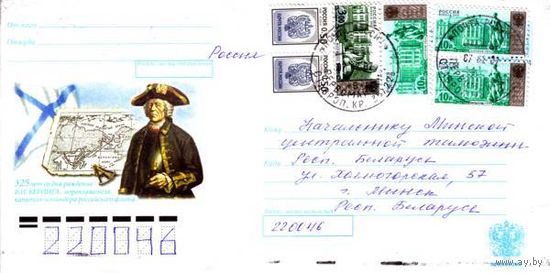 От кого
Откуда
Россия
РОССИЯ
РОССИЯ
10
10
10
Кому
Начальнику Минской
центральной таможни
Куда
Респ. Беларусь
ул. Холмогорская, 57
г. Минск
Респ. Беларусь
220046
325 лет со дня рождения
В.И. БЕРИНГА, мореплавателя,
капитан-командора российского флота
220046
www.ay.by